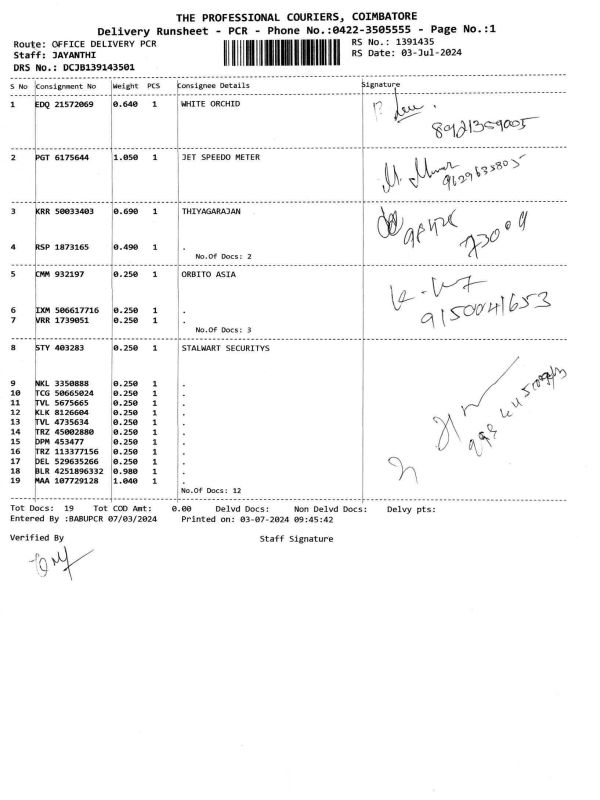 THE PROFESSIONAL COURIERS, COIMBATORE
Delivery Runsheet - PCR - Phone No.:0422-3505555 - Page No.:1
Route: OFFICE DELIVERY PCR RS No.: 1391435
Staff: JAYANTHI RS Date: 03-Jul-2024
DRS No.: DCJB139143501
S No Consignment No Weight PCS Consignee Details Signature
1 EDQ 21572069 0.640 1 WHITE ORCHID
2 PGT 6175644 1.050 1 JET SPEEDO METER
9629635805
3 KRR 50033403 0.690 1 THIYAGARAJAN
4 RSP 1873165 0.490 1 .
No.Of Docs: 2
5 CMM 932197 0.250 1 ORBITO ASIA
9150041653
6 IXM 506617716 0.250 1 .
7 VRR 1739051 0.250 1 .
No.Of Docs: 3
8 STY 403283 0.250 1 STALWART SECURITYS
9 NKL 3350888 0.250 1 .
10 TCG 50665024 0.250 1 .
11 TVL 5675665 0.250 1 .
12 KLK 8126604 0.250 1 .
13 TVL 4735634 0.250 1 .
14 TRZ 45002880 0.250 1 .
15 DPM 453477 0.250 1 .
16 TRZ 113377156 0.250 1 .
17 DEL 529635266 0.250 1 .
18 BLR 4251896332 0.980 1 .
19 MAA 107729128 1.040 1 .
No.Of Docs: 12
Tot Docs: 19 Tot COD Amt: 0.00 Delvd Docs: Non Delvd Docs: Delvy pts:
Entered By :BABUPCR 07/03/2024 Printed on: 03-07-2024 09:45:42
Verified By Staff Signature